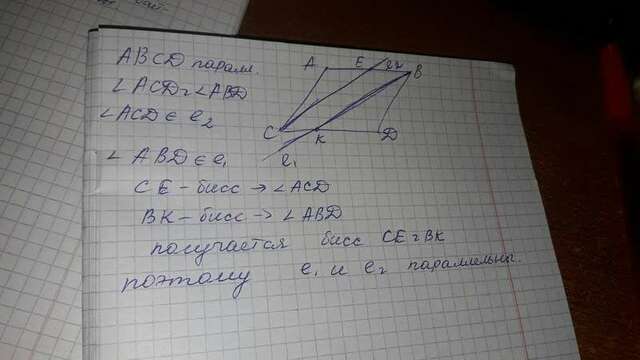 ABCD паралл.
∠ACD = ∠ABD
∠ACD ∈ e₂
∠ABD ∈ e₁
CE – бисс → ∠ACD
BK – бисс → ∠ABD
получается бисс CE = BK
поэтому e₁ и e₂ параллельны.
A E e₂ B
C K D
e₁